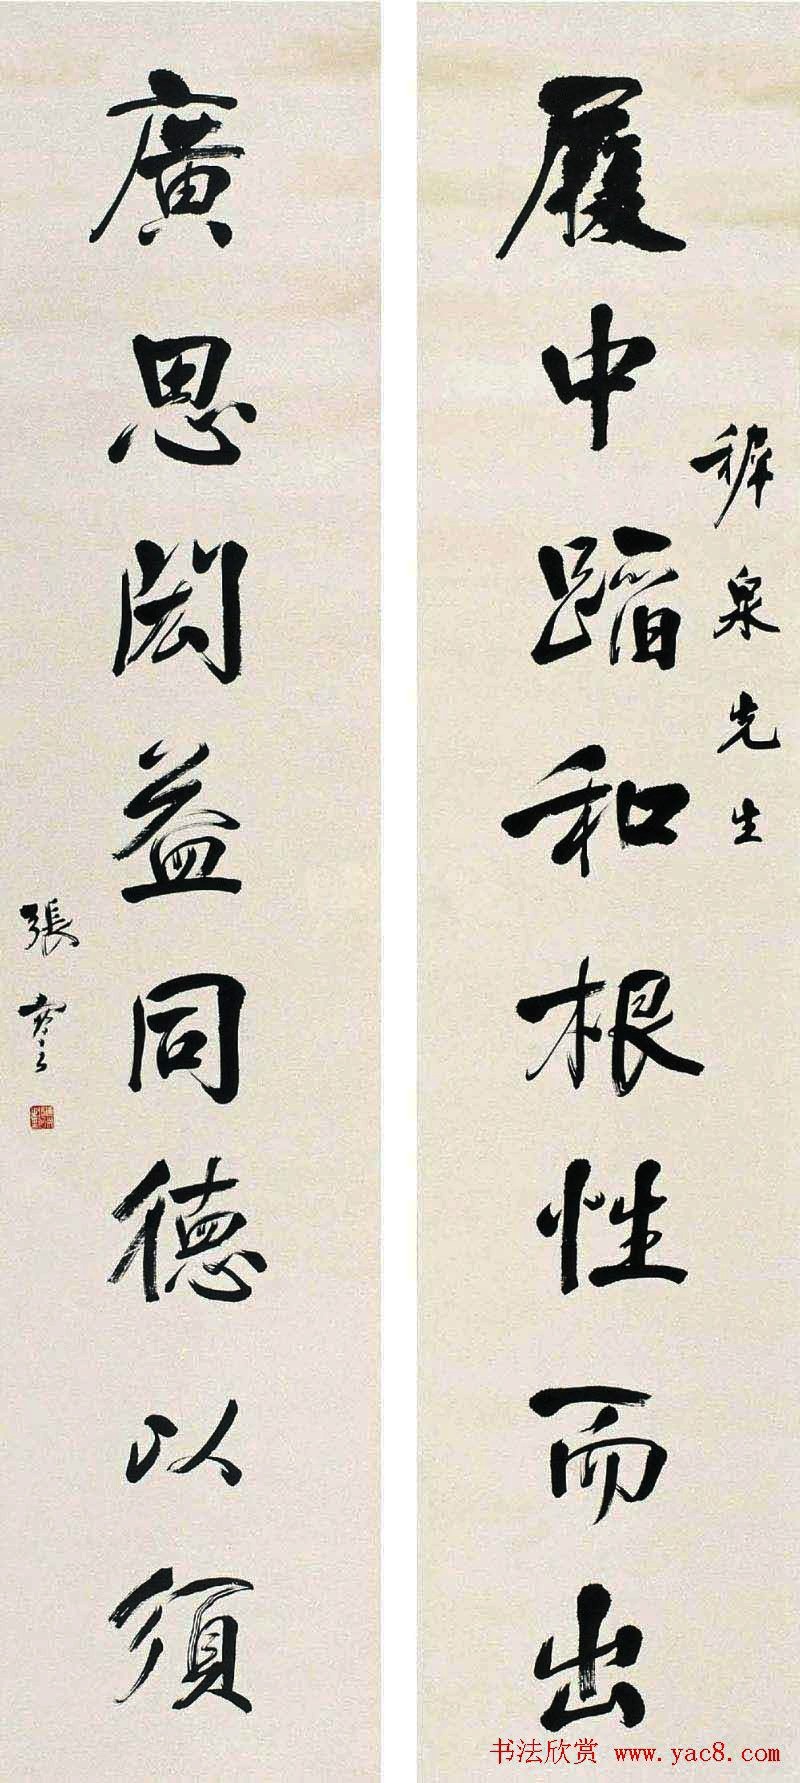 履中蹈和根性而出
稚泉先生
廣思闳益同德以須
張謇
书法欣赏 www.yac8.com